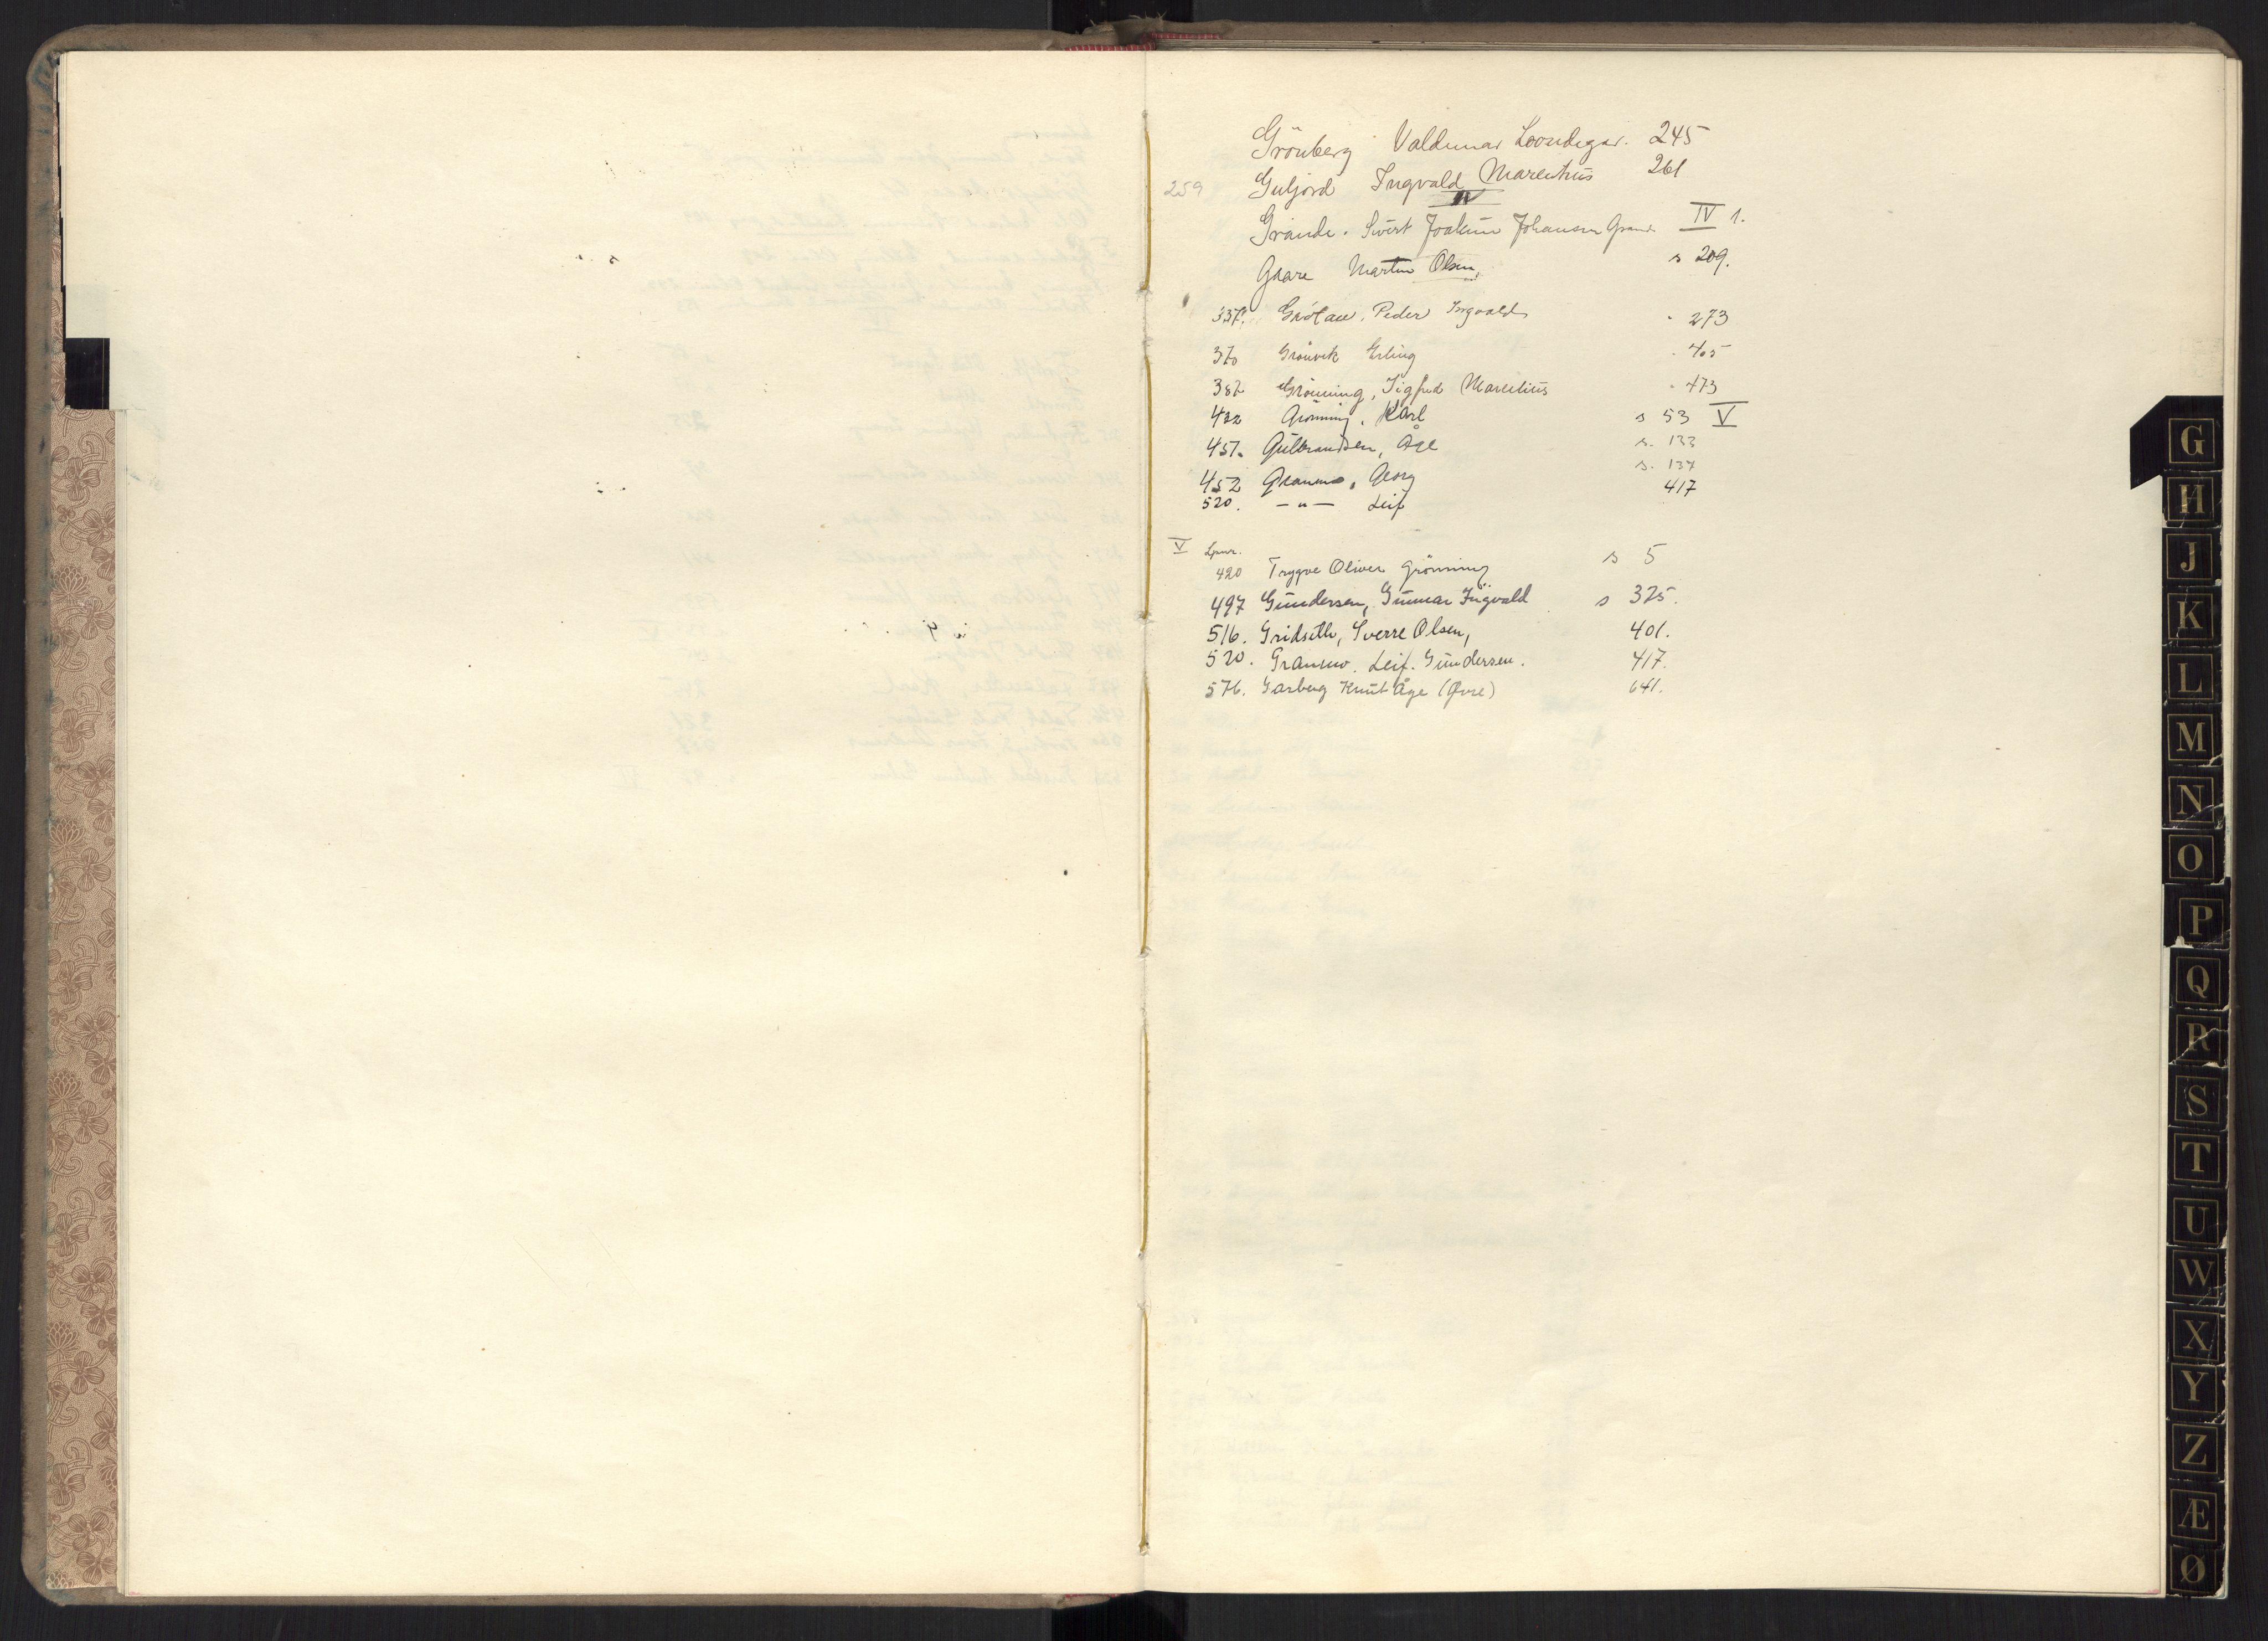 Grönberg Valdemar 245
259 Guljord Ingvald Marentius 261
IV
Grande. Sivert Joakim Johansen Grande IV 1.
Gaare Martin Olsen, s 209.
337. Grötau, Peder Ingvald 273
370 Grönvik Erling 405
387 Grönning, Sigfred Marelius 473
432 Grönning, Karl s 53 V
451. Gulbrandsen, Åge s. 133
452 Granmo, Georg s. 137
520. — " — Leif 417
V Lpnr.
420 Trygve Oliver Grönning s 5
497 Gundersen, Gunnar Ingvald s 325.
516. Gridseth, Sverre Olsen, 401.
520. Granmo. Leif. Gundersen. 417.
576. Garberg Knut Åge (Øvre) 641.
G
H
J
K
L
M
N
O
P
Q
R
S
T
U
W
X
Y
Z
Æ
Ø